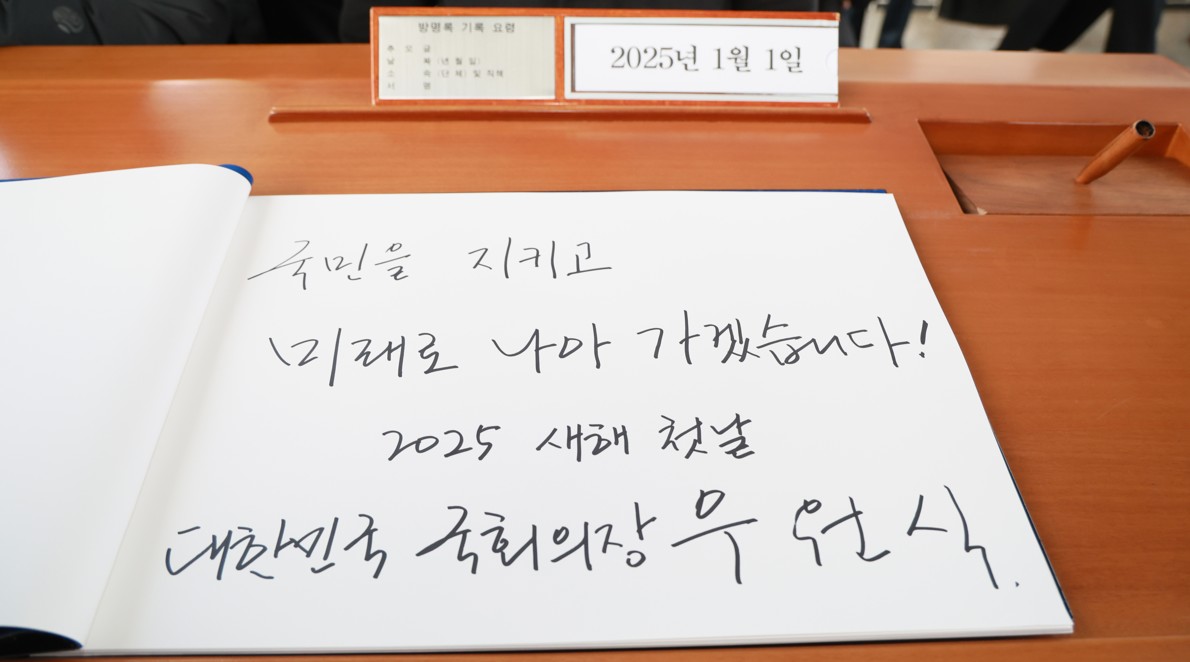 방명록 기록 요령
추 모 글
날 짜 (년 월 일)
소 속 (단 체) 및 직책
서 명
2025년 1월 1일
국민을 지키고
미래로 나아 가겠습니다!
2025 새해 첫날
대한민국 국회의장 우원식.